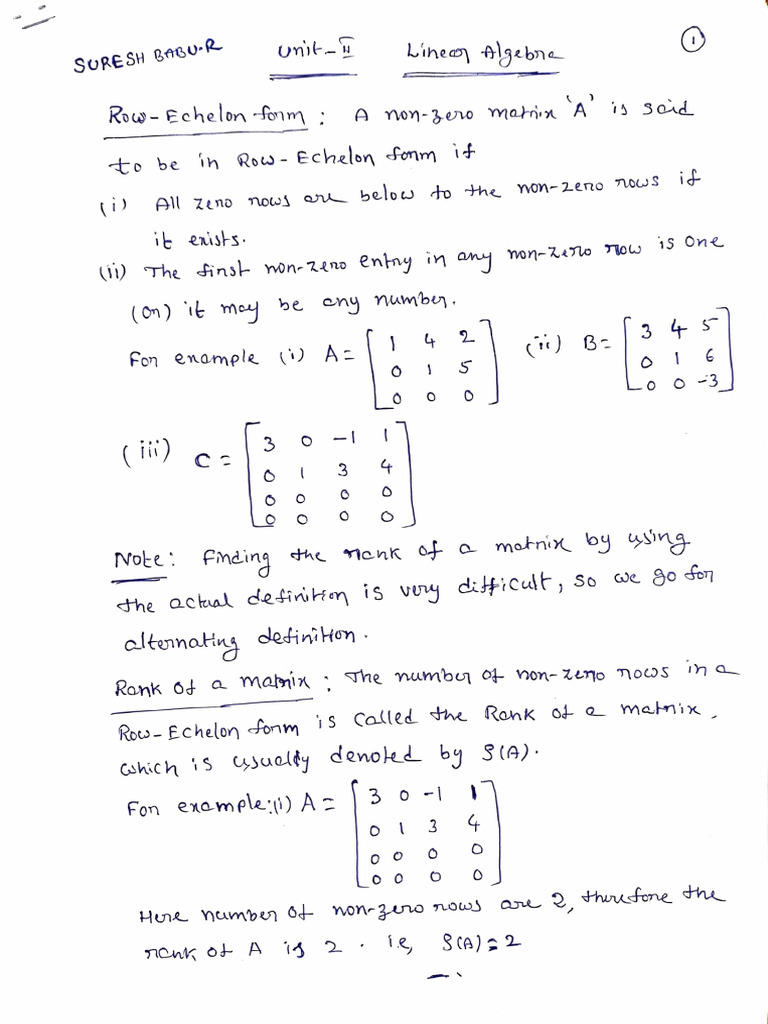 SURESH BABU.R Unit-II Linear Algebra 1
Row-Echelon form : A non-zero matrix 'A' is said
to be in Row-Echelon form if
(i) All zero rows are below to the non-zero rows if
it exists.
(ii) The first non-zero entry in any non-zero row is one
(or) it may be any number.
For example (i) A = [1 4 2 (ii) B = [3 4 5
0 1 5 0 1 6
0 0 0] 0 0 -3]
(iii) C = [3 0 -1 1
0 1 3 4
0 0 0 0
0 0 0 0]
Note: Finding the rank of a matrix by using
the actual definition is very difficult, so we go for
alternating definition.
Rank of a matrix : The number of non-zero rows in a
Row-Echelon form is called the Rank of a matrix.
which is usually denoted by ρ(A).
For example:(i) A = [3 0 -1 1
0 1 3 4
0 0 0 0
0 0 0 0]
Here number of non-zero rows are 2, therefore the
rank of A is 2. ie, ρ(A)=2